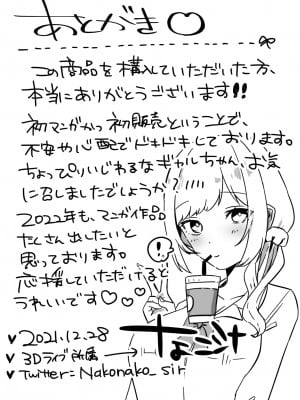 あとがき♡
この商品を購入していただいた方、
本当にありがとうございます!!
初マンガかつ初販売ということで、
不安や心配でドキドキしております。
ちょっぴりいじわるなギャルちゃん、お気
に召しましたでしょうか?
2022年も、マンガ作品
たくさん出したいと
思っております。
応援していただけると
うれしいです♡♡♡
!
2021.12.28
3Dライブ所属
Twitter: Nakonako_sir